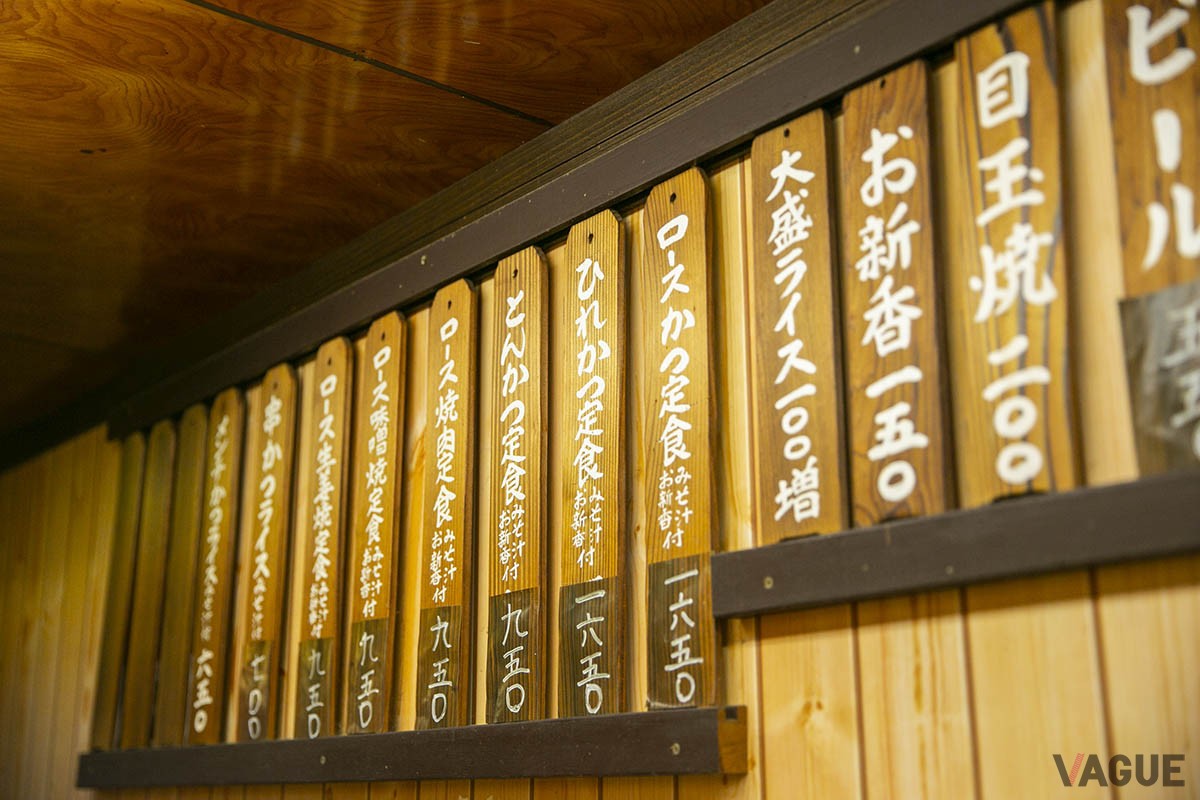 ビール 五五〇
目玉焼 二〇〇
お新香 一五〇
大盛ライス 一〇〇増
ロースかつ定食 みそ汁 お新香 付 一六五〇
ひれかつ定食 みそ汁 お新香 付 一六五〇
とんかつ定食 みそ汁 お新香 付 九五〇
ロース焼肉定食 みそ汁 お新香 付 九五〇
ロース味噌焼定食 みそ汁 お新香 付 九五〇
ロース生姜焼定食 みそ汁 お新香 付 九五〇
串かつライス みそ汁付 七〇〇
メンチかつライス みそ汁付 六五〇
VAGUE